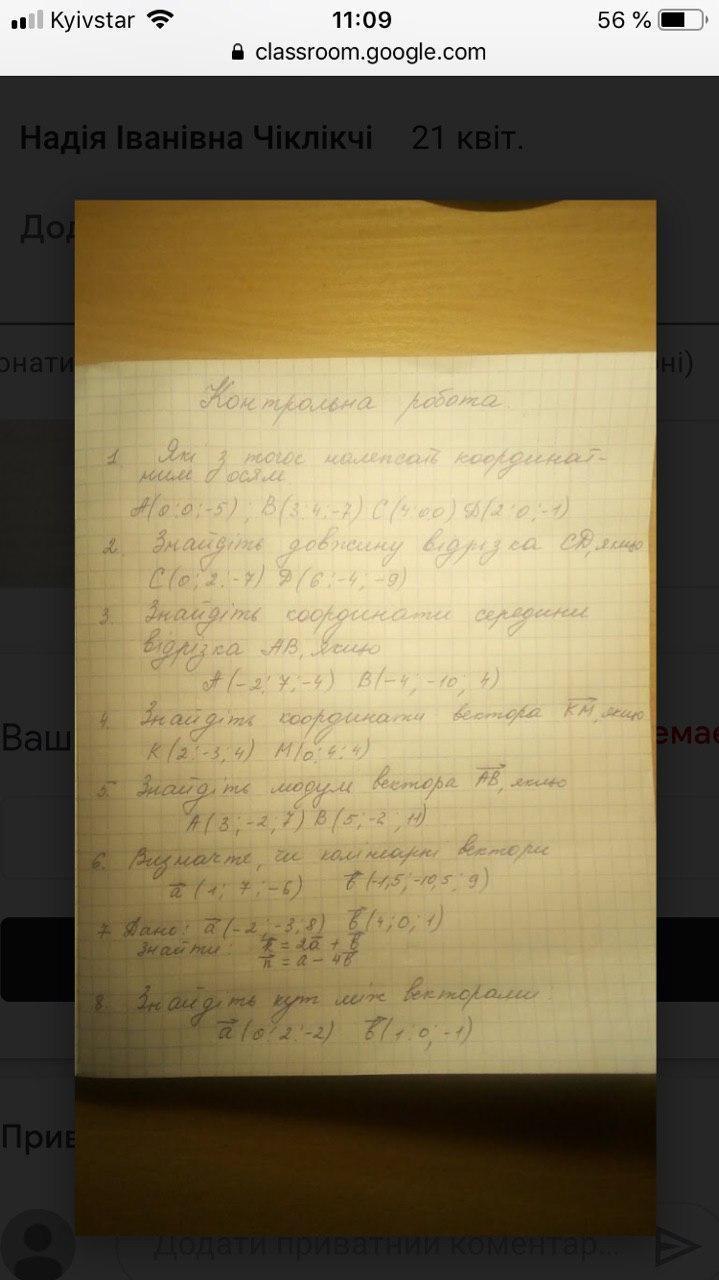 Kyivstar 11:09 56 %
classroom.google.com
Надія Іванівна Чіклікчі 21 квіт.
Контрольна робота
1. Які з точок належать координат-
ним осям
A(0; 0; -5), B(3; 4; -7) C(4; 0; 0) D(2; 0; -1)
2. Знайдіть довжину відрізка CD, якщо
C(0; 2; -7) D(6; -4; -9)
3. Знайдіть координати середини
відрізка AB, якщо
A(-2; 7; -4) B(-4; -10; 4)
4. Знайдіть координати вектора KM, якщо
K(2; -3; 4) M(0; 4; 4)
5. Знайдіть модуль вектора AB, якщо
A(3; -2; 7) B(5; -2; 11)
6. Визначте, чи колінеарні вектори
a (1; 7; -6) b(-1,5; -10,5; 9)
7. Дано: a(-2; -3; 8) b(4; 0; 1)
Знайти: k = 2a + b
n = a - 4b
8. Знайдіть кут між векторами:
a(0; 2; -2) b(1; 0; -1)
Ваш
Додати приватний коментар...